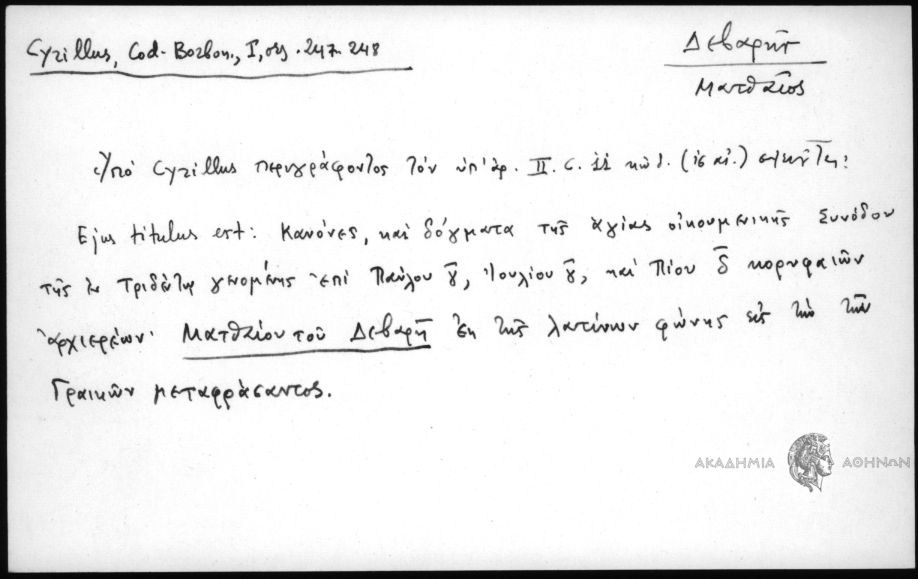 Cyrillus, Cod. Borbon., I, σσ. 247-248
Δεβαρῆς
Ματθαῖος
Ὑπό Cyrillus περιγράφοντος τόν ὑπ' ἀρ. II. C. 11 κώδ. (ις αἰ.)
Ejus titulus est: Κανόνες, καί δόγματα τῆς ἁγίας οἰκουμενικῆς Συνόδου
τῆς ἐν Τριδέντῳ γενομένης ἐπί Παύλου γ̄, Ἰουλίου γ̄, καί Πίου δ̄ κορυφαιῶν
ἀρχιερέων· Ματθαίου τοῦ Δεβαρῆ ἐκ τῆς λατίνων φώνης εἰς τήν τῶν
Γραικῶν μεταφράσαντος.
ΑΚΑΔΗΜΙΑ ΑΘΗΝΩΝ